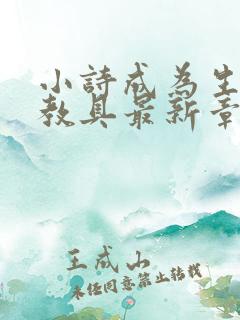 小詩成為生
教具最新章
王成山
未经同意禁止转载